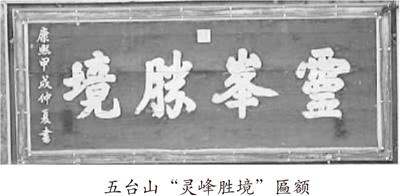 靈峯勝境
康熙甲戌仲夏書
五台山“灵峰胜境”匾额